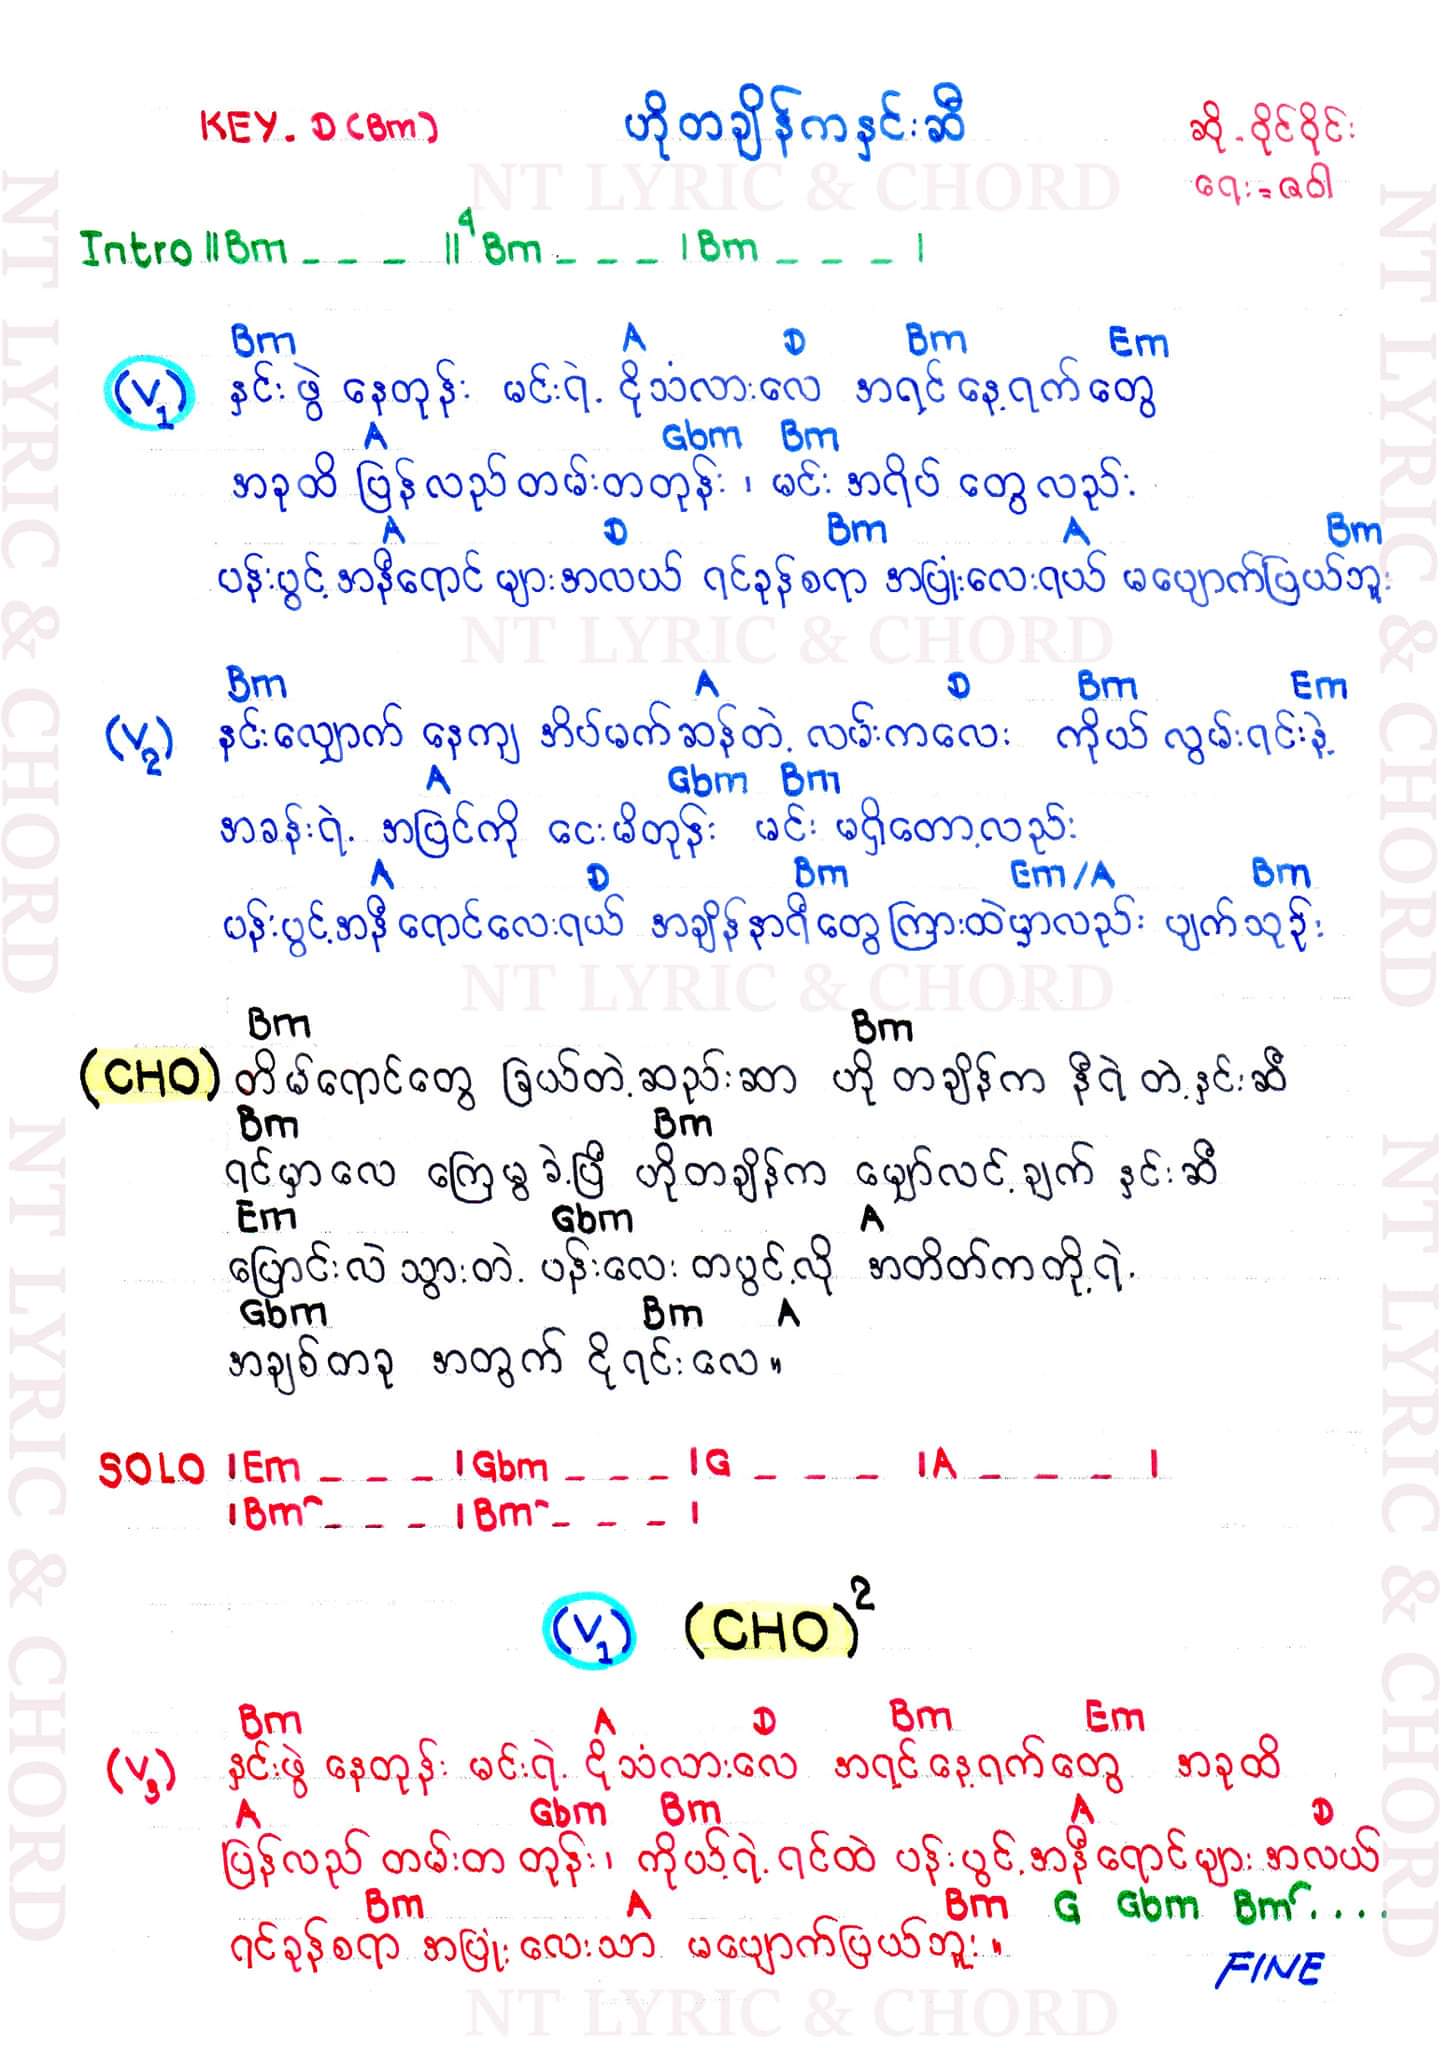 KEY. D (Bm) ဟိုတချိန်ကနှင်းဆီ ဆို - ဝိုင်ဝိုင်း
ရေး = ဇဝါ
NT LYRIC & CHORD
Intro ||Bm _ _ _ ||⁴ Bm _ _ _ | Bm _ _ _ |
Bm A D Bm Em
(V1) နှင်းဖွဲ နေတုန်း မင်းရဲ့ ငိုသံလားလေ အရင်နေ့ရက်တွေ
A Gbm Bm
အခုထိ ပြန်လည်တမ်းတတုန်း ၊ မင်း အရိပ် တွေလည်း
A D Bm A Bm
ပန်းပွင့်အနီရောင် များအလယ် ရင်ခုန်စရာ အပြုံးလေးရယ် မပျောက်ပြယ်ဘူး
NT LYRIC & CHORD
Bm A D Bm Em
(V2) နှင်းလျှောက် နေကျ အိပ်မက်ဆန်တဲ့ လမ်းကလေး ကိုယ် လွမ်းရင်းနဲ့
A Gbm Bm
အခန်းရဲ့ အပြင်ကို ငေးမိတုန်း မင်း မရှိတော့လည်း
A D Bm Em/A Bm
ပန်းပွင့်အနီရောင်လေးရယ် အချိန်နာရီတွေကြားထဲမှာလည်း ပျက်သုဉ်း
NT LYRIC & CHORD
Bm Bm
(CHO) တိမ်ရောင်တွေ ခြယ်တဲ့ဆည်းဆာ ဟို တချိန်က နီရဲ တဲ့နှင်းဆီ
Bm Bm
ရင်မှာလေ ကြေမွခဲ့ပြီ ဟိုတချိန်က မျှော်လင့်ချက် နှင်းဆီ
Em Gbm A
ပြောင်းလဲသွားတဲ့ ပန်းလေး တပွင့်လို အတိတ်ကတို့ရဲ့
Gbm Bm A
အချစ်တခု အတွက် ငိုရင်းလေ ။
SOLO | Em _ _ _ | Gbm _ _ _ | G _ _ _ | A _ _ _ |
| Bm _ _ _ | Bm _ _ _ |
(V1) (CHO)²
Bm A D Bm Em
(V3) နှင်းဖွဲ နေတုန်း မင်းရဲ့ ငိုသံလားလေ အရင်နေ့ရက်တွေ အခုထိ
A Gbm Bm A D
ပြန်လည် တမ်းတ တုန်း ၊ ကိုယ့်ရဲ့ ရင်ထဲ ပန်းပွင့်အနီရောင်များ အလယ်
Bm A Bm G Gbm Bm....
ရင်ခုန်စရာ အပြုံးလေးသာ မပျောက်ပြယ်ဘူး ။
FINE
NT LYRIC & CHORD
NT LYRIC & CHORD
NT LYRIC & CHORD
NT LYRIC & CHORD
NT LYRIC & CHORD